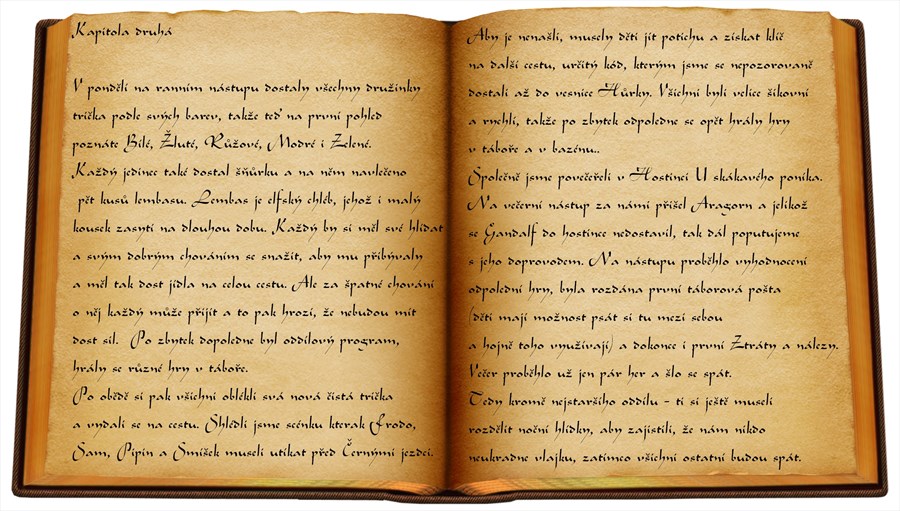 Kapitola druhá
V pondělí na ranním nástupu dostaly všechny družinky
trička podle svých barev, takže teď na první pohled
poznáte Bílé, Žluté, Růžové, Modré i Zelené.
Každý jedinec také dostal šňůrku a na něm navlečeno
pět kusů lembasu. Lembas je elfský chléb, jehož i malý
kousek zasytí na dlouhou dobu. Každý by si měl své hlídat
a svým dobrým chováním se snažit, aby mu přibývaly
a měl tak dost jídla na celou cestu. Ale za špatné chování
o něj každý může přijít a to pak hrozí, že nebudou mít
dost sil. Po zbytek dopoledne byl oddílový program,
hrály se různé hry v táboře.
Po obědě si pak všichni oblékli svá nová čistá trička
a vydali se na cestu. Shlédli jsme scénku kterak Frodo,
Sam, Pipin a Smíšek museli utíkat před Černými jezdci.
Aby je nenašli, musely děti jít potichu a získat klíč
na další cestu, určitý kód, kterým jsme se nepozorovaně
dostali až do vesnice Hůrky. Všichni byli velice šikovní
a rychlí, takže po zbytek odpoledne se opět hrály hry
v táboře a v bazénu..
Společně jsme povečeřeli v Hostinci U skákavého poníka.
Na večerní nástup za námi přišel Aragorn a jelikož
se Gandalf do hostince nedostavil, tak dál poputujeme
s jeho doprovodem. Na nástupu proběhlo vyhodnocení
odpolední hry, byla rozdána první táborová pošta
(děti mají možnost psát si tu mezi sebou
a hojně toho využívají) a dokonce i první Ztráty a nálezy.
Večer proběhlo už jen pár her a šlo se spát.
Tedy kromě nejstaršího oddílu - ti si ještě museli
rozdělit noční hlídky, aby zajistili, že nám nikdo
neukradne vlajku, zatímco všichni ostatní budou spát.